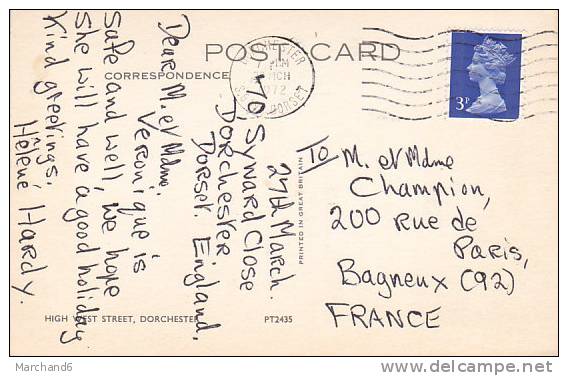 POST CARD
CORRESPONDENCE
DORSET
3P
70 Syward Close
Dorchester
Dorset. England.
27th March.
Dear M. et Mdme.
Veronique is
safe and well, we hope
she will have a good holiday
Kind greetings.
Hélené Hardy.
To
M. et Mdme
Champion,
200 Rue de
Paris,
Bagneux (92)
FRANCE
PRINTED IN GREAT BRITAIN
HIGH WEST STREET, DORCHESTER
PT2435
Marchand6
www.delcampe.net